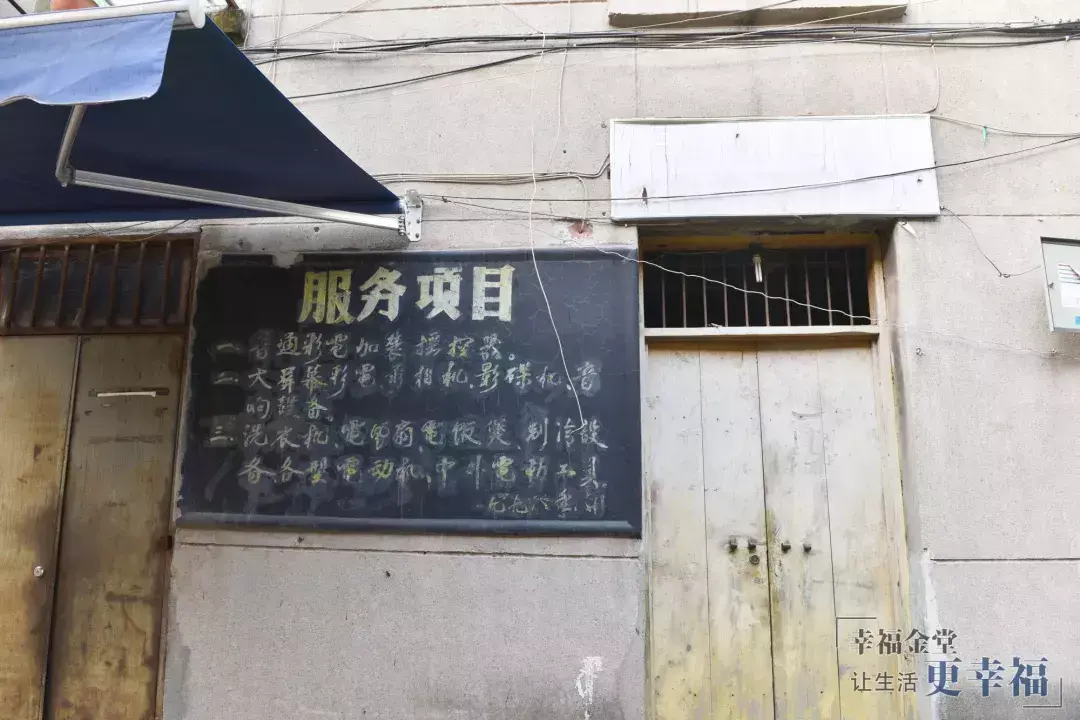 服务项目
一、普通彩電加裝摇控器。
二、大屏幕彩電、录相机、影碟机、音
响設备。
三、洗衣机、電風扇、電飯煲、制冷設
备、各型電动机、中外電動工具
幸福金堂
让生活更幸福